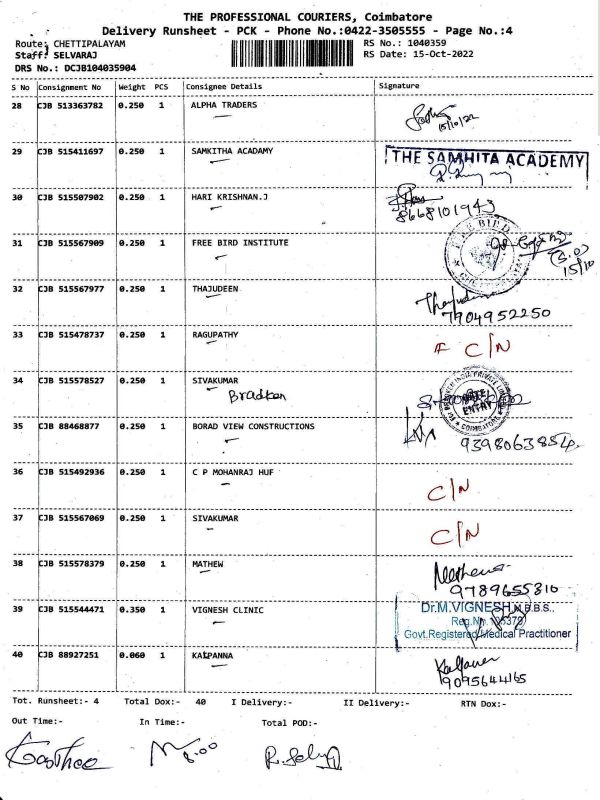 THE PROFESSIONAL COURIERS, Coimbatore
Delivery Runsheet - PCK - Phone No.:0422-3505555 - Page No.:4
Route: CHETTIPALAYAM RS No.: 1040359
Staff: SELVARAJ RS Date: 15-Oct-2022
DRS No.: DCJB104035904
S No Consignment No Weight PCS Consignee Details Signature
28 CJB 513363782 0.250 1 ALPHA TRADERS
15/10/22
29 CJB 515411697 0.250 1 SAMKITHA ACADAMY THE SAMHITA ACADEMY
30 CJB 515507902 0.250 1 HARI KRISHNAN.J
8668101943
31 CJB 515567909 0.250 1 FREE BIRD INSTITUTE FREE BIRD
15/10
32 CJB 515567977 0.250 1 THAJUDEEN Thajudeen
7904952250
33 CJB 515478737 0.250 1 RAGUPATHY C/N
34 CJB 515578527 0.250 1 SIVAKUMAR
Bradken GATE ENTRY COIMBATORE
35 CJB 88468877 0.250 1 BORAD VIEW CONSTRUCTIONS
9398063854
36 CJB 515492936 0.250 1 C P MOHANRAJ HUF
C/N
37 CJB 515567069 0.250 1 SIVAKUMAR
C/N
38 CJB 515578379 0.250 1 MATHEW
9789655810
39 CJB 515544471 0.350 1 VIGNESH CLINIC Dr.M.VIGNESH,M.B.B.S.,
Reg.No.
Govt.Registered Medical Practitioner
40 CJB 88927251 0.060 1 KALPANNA
9095644165
Tot. Runsheet:- 4 Total Dox:- 40 I Delivery:- II Delivery:- RTN Dox:-
Out Time:- In Time:- Total POD:-
8.00